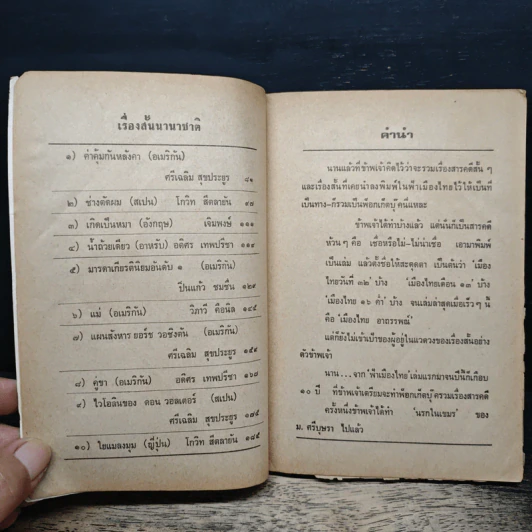 เรื่องสั้นนานาชาติ
๑) ค่าคุ้มกันหลังคา (อเมริกัน)
ศรีเฉลิม สุขประยูร ๘๑
๒) ช่างตัดผม (สเปน) โกวิท สีตลายัน ๙๗
๓) เกิดเป็นหมา (อังกฤษ) เจิมพงษ์ ๑๑๑
๔) น้ำถ้วยเดียว (อาหรับ) อดิศร เทพปรีชา ๑๑๙
๕) มารดาเกียรตินิยมอันดับ ๑ (อเมริกัน)
ปิ่นแก้ว ชมชื่น ๑๒๙
๖) แม่ (อเมริกัน) วิภาวี คือนิล ๑๔๕
๗) แผนสังหาร ยอร์ช วอชิงตัน (อเมริกัน)
ศรีเฉลิม สุขประยูร ๑๕๙
๘) คู่ขา (อเมริกัน) อดิศร เทพปรีชา ๑๖๙
๙) ไวโอลินของ ดอน วอลเตอร์ (สเปน)
ศรีเฉลิม สุขประยูร ๑๗๕
๑๐) ใยแมลงมุม (ญี่ปุ่น) โกวิท สีตลายัน ๑๘๕
คำนำ
นานแล้วที่ข้าพเจ้าคิดไว้ว่าจะรวมเรื่องสารคดีสั้น ๆ
และเรื่องสั้นที่เคยนำลงพิมพ์ในฟ้าเมืองไทยไว้ให้เป็นที่
เป็นทาง-ก็รวมเป็นพ็อกเก็ตบุ๊คนี่แหละ
ข้าพเจ้าได้ทำบ้างแล้ว แต่นั่นก็เป็นสารคดี
ห้วน ๆ คือ เชื่อหรือไม่-ไม่น่าเชื่อ เอามาพิมพ์
เป็นเล่ม แล้วตั้งชื่อให้สะดุดตา เป็นต้นว่า 'เมือง
ไทยวันที่ ๓๒ บ้าง 'เมืองไทยเดือน ๑๓' บ้าง
'เมืองไทย ๑๖ ค่ำ' บ้าง จนเล่มล่าสุดเมื่อเร็ว ๆ นี้
คือ 'เมืองไทย อาถรรพณ์'
แต่ก็ยังไม่เข้าเป้าของผู้อยู่ในแวดวงของเรื่องสั้นอย่าง
ตัวข้าพเจ้า
นาน...จาก 'ฟ้าเมืองไทย' เล่มแรกมาจนปีนี้ก็เกือบ
๑๐ ปี ที่ข้าพเจ้าเตรียมจะทำพ็อกเก็ตบุ๊ครวมเรื่องสารคดี
ครั้งหนึ่งข้าพเจ้าได้ทำ 'นรกในเขมร' ของ
ม. ศรีบุษรา ไปแล้ว